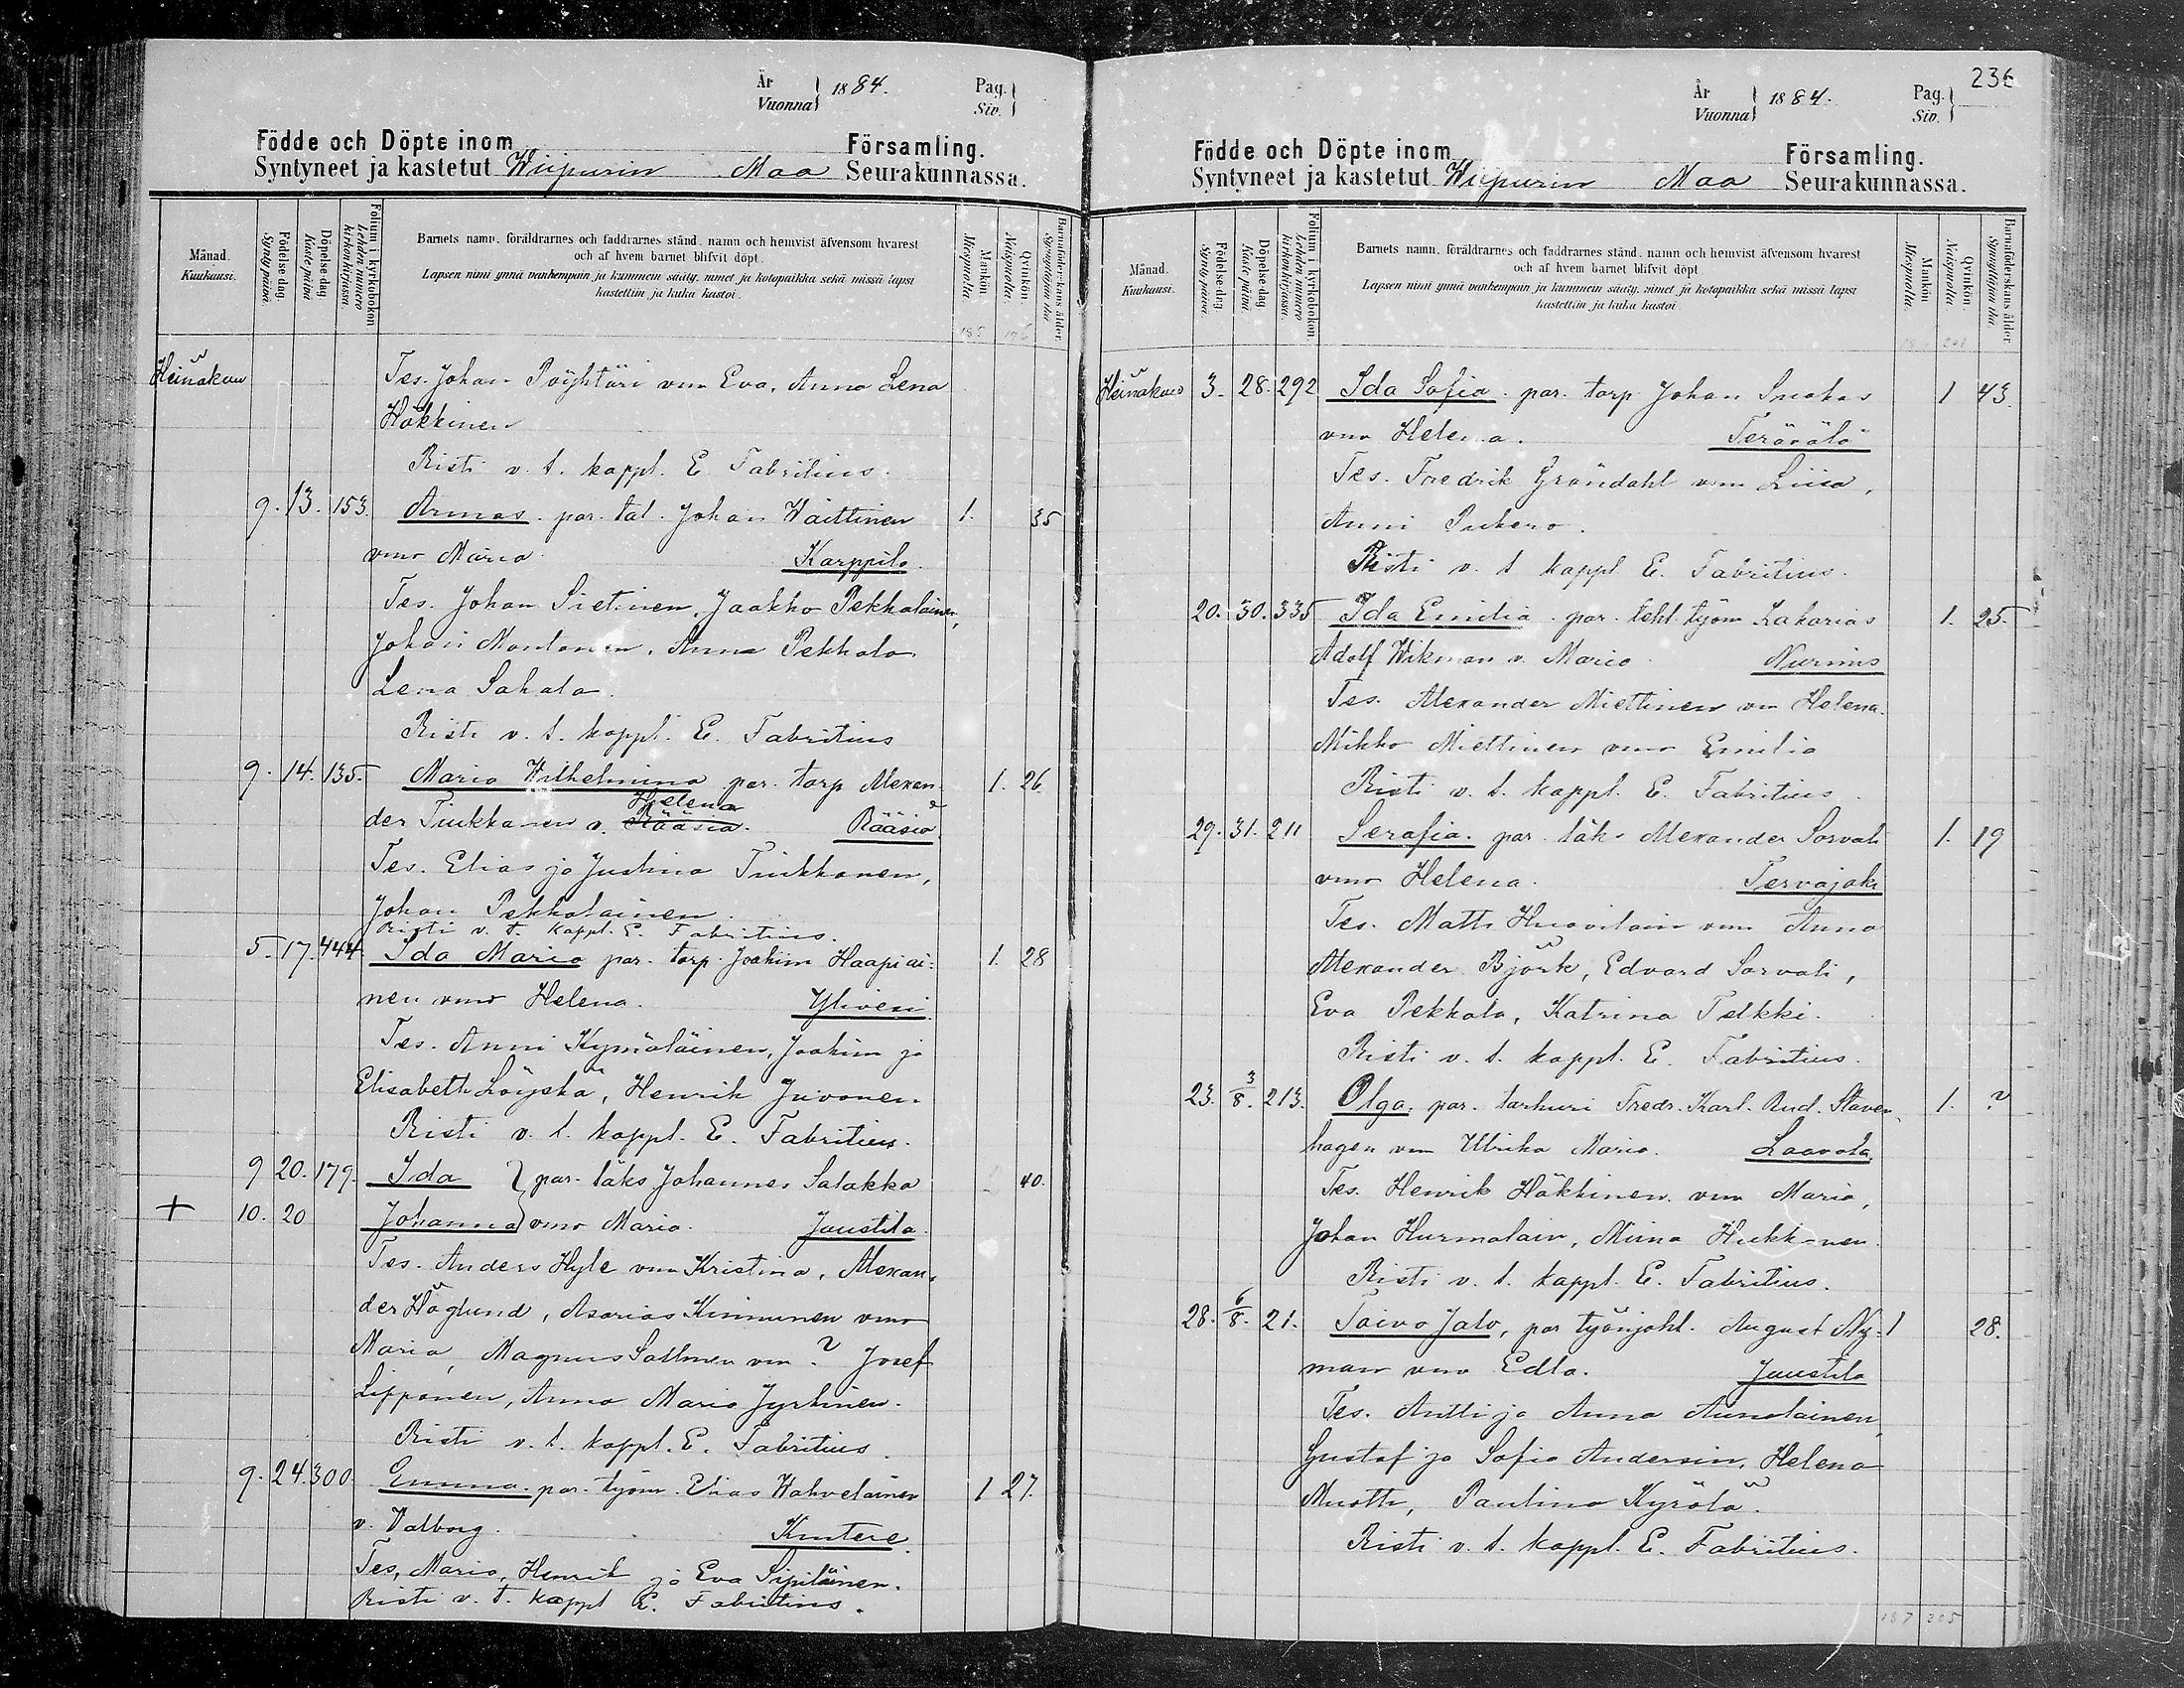 År
Vuonna
1884.
Pag.
Siv.
Födde och Döpte inom Församling.
Syntyneet ja kastetut Wiipurin Maa Seurakunnassa.
Månad.
Kuukausi.
Födelse-dag
Syntypäivä.
Döpelse-dag
Kastepäivä
Folium i kyrkoboken
Lehden numero kirkonkirjassa.
Barnets namn, föräldrarnes och faddrarnes stånd, namn och hemvist äfvensom hvarest
och af hvem barnet blifvit döpt.
Lapsen nimi ynnä vanhempain ja kummein sääty, nimet ja kotopaikka sekä missä lapsi
kastettiin ja kuka kastoi.
Mankön
Miespuolta.
Qvinkön
Naispuolta.
Barnaföderskans ålder.
Synnyttäjän ikä
185 196
Heinäkuu
Tes. Johan Pöyhtäri vmo Eva, Anna Lena
Häkkinen
Risti v. t. kappl. E. Fabritius.
9. 13. 153. Armas. par. tal. Johan Waittinen 1. 35
vmo Maria. Karppila.
Tes. Johan Sietinen, Jaakko Pekkalainen,
Johan Montonen, Anna Pekkala
Lena Sahala.
Risti v. t. kappl. E. Fabritius
9. 14. 135. Maria Wilhelmina par. torp Alexan- 1. 26.
Helena
der Tiukkanen v. Rääsiä. Rääsiä
Tes. Elias ja Justina Tiukkanen,
Johan Pekkalainen.
Risti v. t. kappl. E. Fabritius.
5. 17. 444. Ida Maria par. torp. Joakim Haapiai- 1. 28
nen vmo Helena. Ylivesi.
Tes. Anni Kymäläinen, Joakim ja
Elisabeth Löyskä, Henrik Juvonen.
Risti v. t. kappl. E. Fabritius.
9 20. 179. Ida } par. läks Johannes Salakka 40.
+ 10. 20 Johanna } vmo Maria. Juustila.
Tes. Anders Hyle vmo Kristina, Alexan-
der Höglund, Asarias Kinnunen vmo
Maria, Magnus Sallinen vm ? Josef
Lipponen, Anna Maria Jyrkinen.
Risti v. t. kappl. E. Fabritius.
9. 24. 300. Emma. par. työm. Elias Wahvelainen 1 27.
v. Valborg. Kintere.
Tes, Maria, Henrik ja Eva Sipiläinen.
Risti v. t. kappl E. Fabritius.
236
År
Vuonna
1884.
Pag.
Siv.
Födde och Döpte inom Församling.
Syntyneet ja kastetut Wiipurin Maa Seurakunnassa.
Månad.
Kuukausi.
Födelse-dag
Syntypäivä.
Döpelse-dag
Kastepäivä
Folium i kyrkoboken
Lehden numero kirkonkirjassa.
Barnets namn, föräldrarnes och faddrarnes stånd, namn och hemvist äfvensom hvarest
och af hvem barnet blifvit döpt
Lapsen nimi ynnä vanhempain ja kummein sääty, nimet ja kotopaikka sekä missä lapsi
kastettiin ja kuka kastoi
Mankön
Miespuolta.
Qvinkön.
Naispuolta.
Barnaföderskans ålder
Synnyttäjän ikä.
Heinäkuu 3. 28. 292 Ida Sofia. par. torp. Johan Suokas 1 43.
vmo Helena. Terävälä
Tes. Fredrik Gröndahl vmo Liisa,
Anni Pukero.
Risti v. t kappl E. Fabritius.
20. 30. 335 Ida Emilia. par. teht. työm Zakarias 1. 25.
Adolf Wikman v. Maria. Nurmis
Tes. Alexander Miettinen vm Helena.
Mikko Miettinen vmo Emilia
Risti v. t. kappl. E. Fabritius.
29. 31. 211 Serafia. par. läks Alexander Sorvali 1. 19
vmo Helena. Tervajoki
Tes. Matti Huovilain vmo Anna
Alexander Björk, Edvard Sorvali,
Eva Pekkala, Katrina Telkki.
Risti v. t. kappl. E. Fabritius.
23. 3/8. 213. Olga. par. karhuri Fredr. Karl. Rud. Staven- 1. ?
hagen vm Ulrika Maria. Laavola.
Tes. Henrik Häkkinen vmo Maria,
Johan Hurmalain, Miina Hukkanen.
Risti v. t. kappl. E. Fabritius.
28. 6/8. 21. Toivo Jalo, par työnjoht. August Ny- 1 28.
man vmo Edla. Juustila
Tes. Antti ja Anna Aunolainen,
Gustaf ja Sofia Andersin, Helena
Muotti, Paulina Kyrölä.
Risti v. t. kappl. E. Fabritius.
187 205